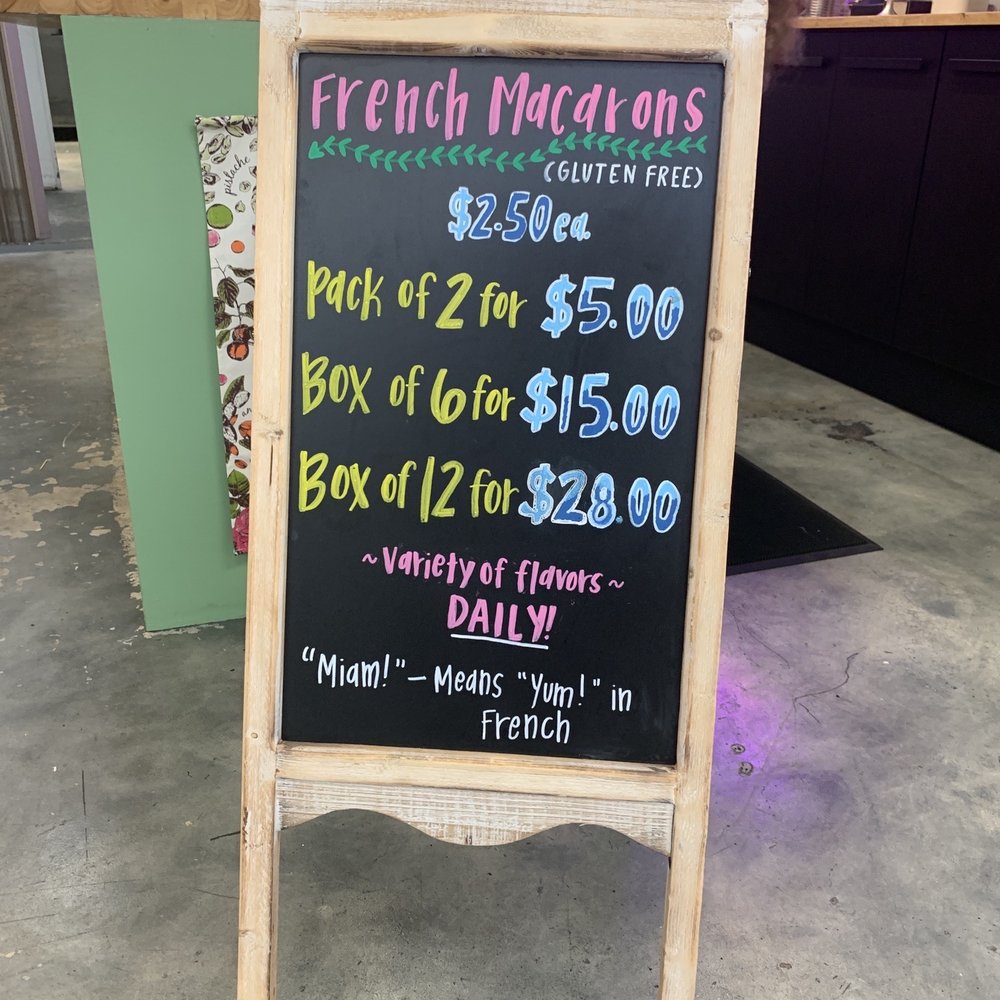 French Macarons
(GLUTEN FREE)
$2.50 ea.
Pack of 2 for $5.00
Box of 6 for $15.00
Box of 12 for $28.00
~Variety of flavors~
DAILY!
"Miam!" – Means "Yum!" in
French
pistache